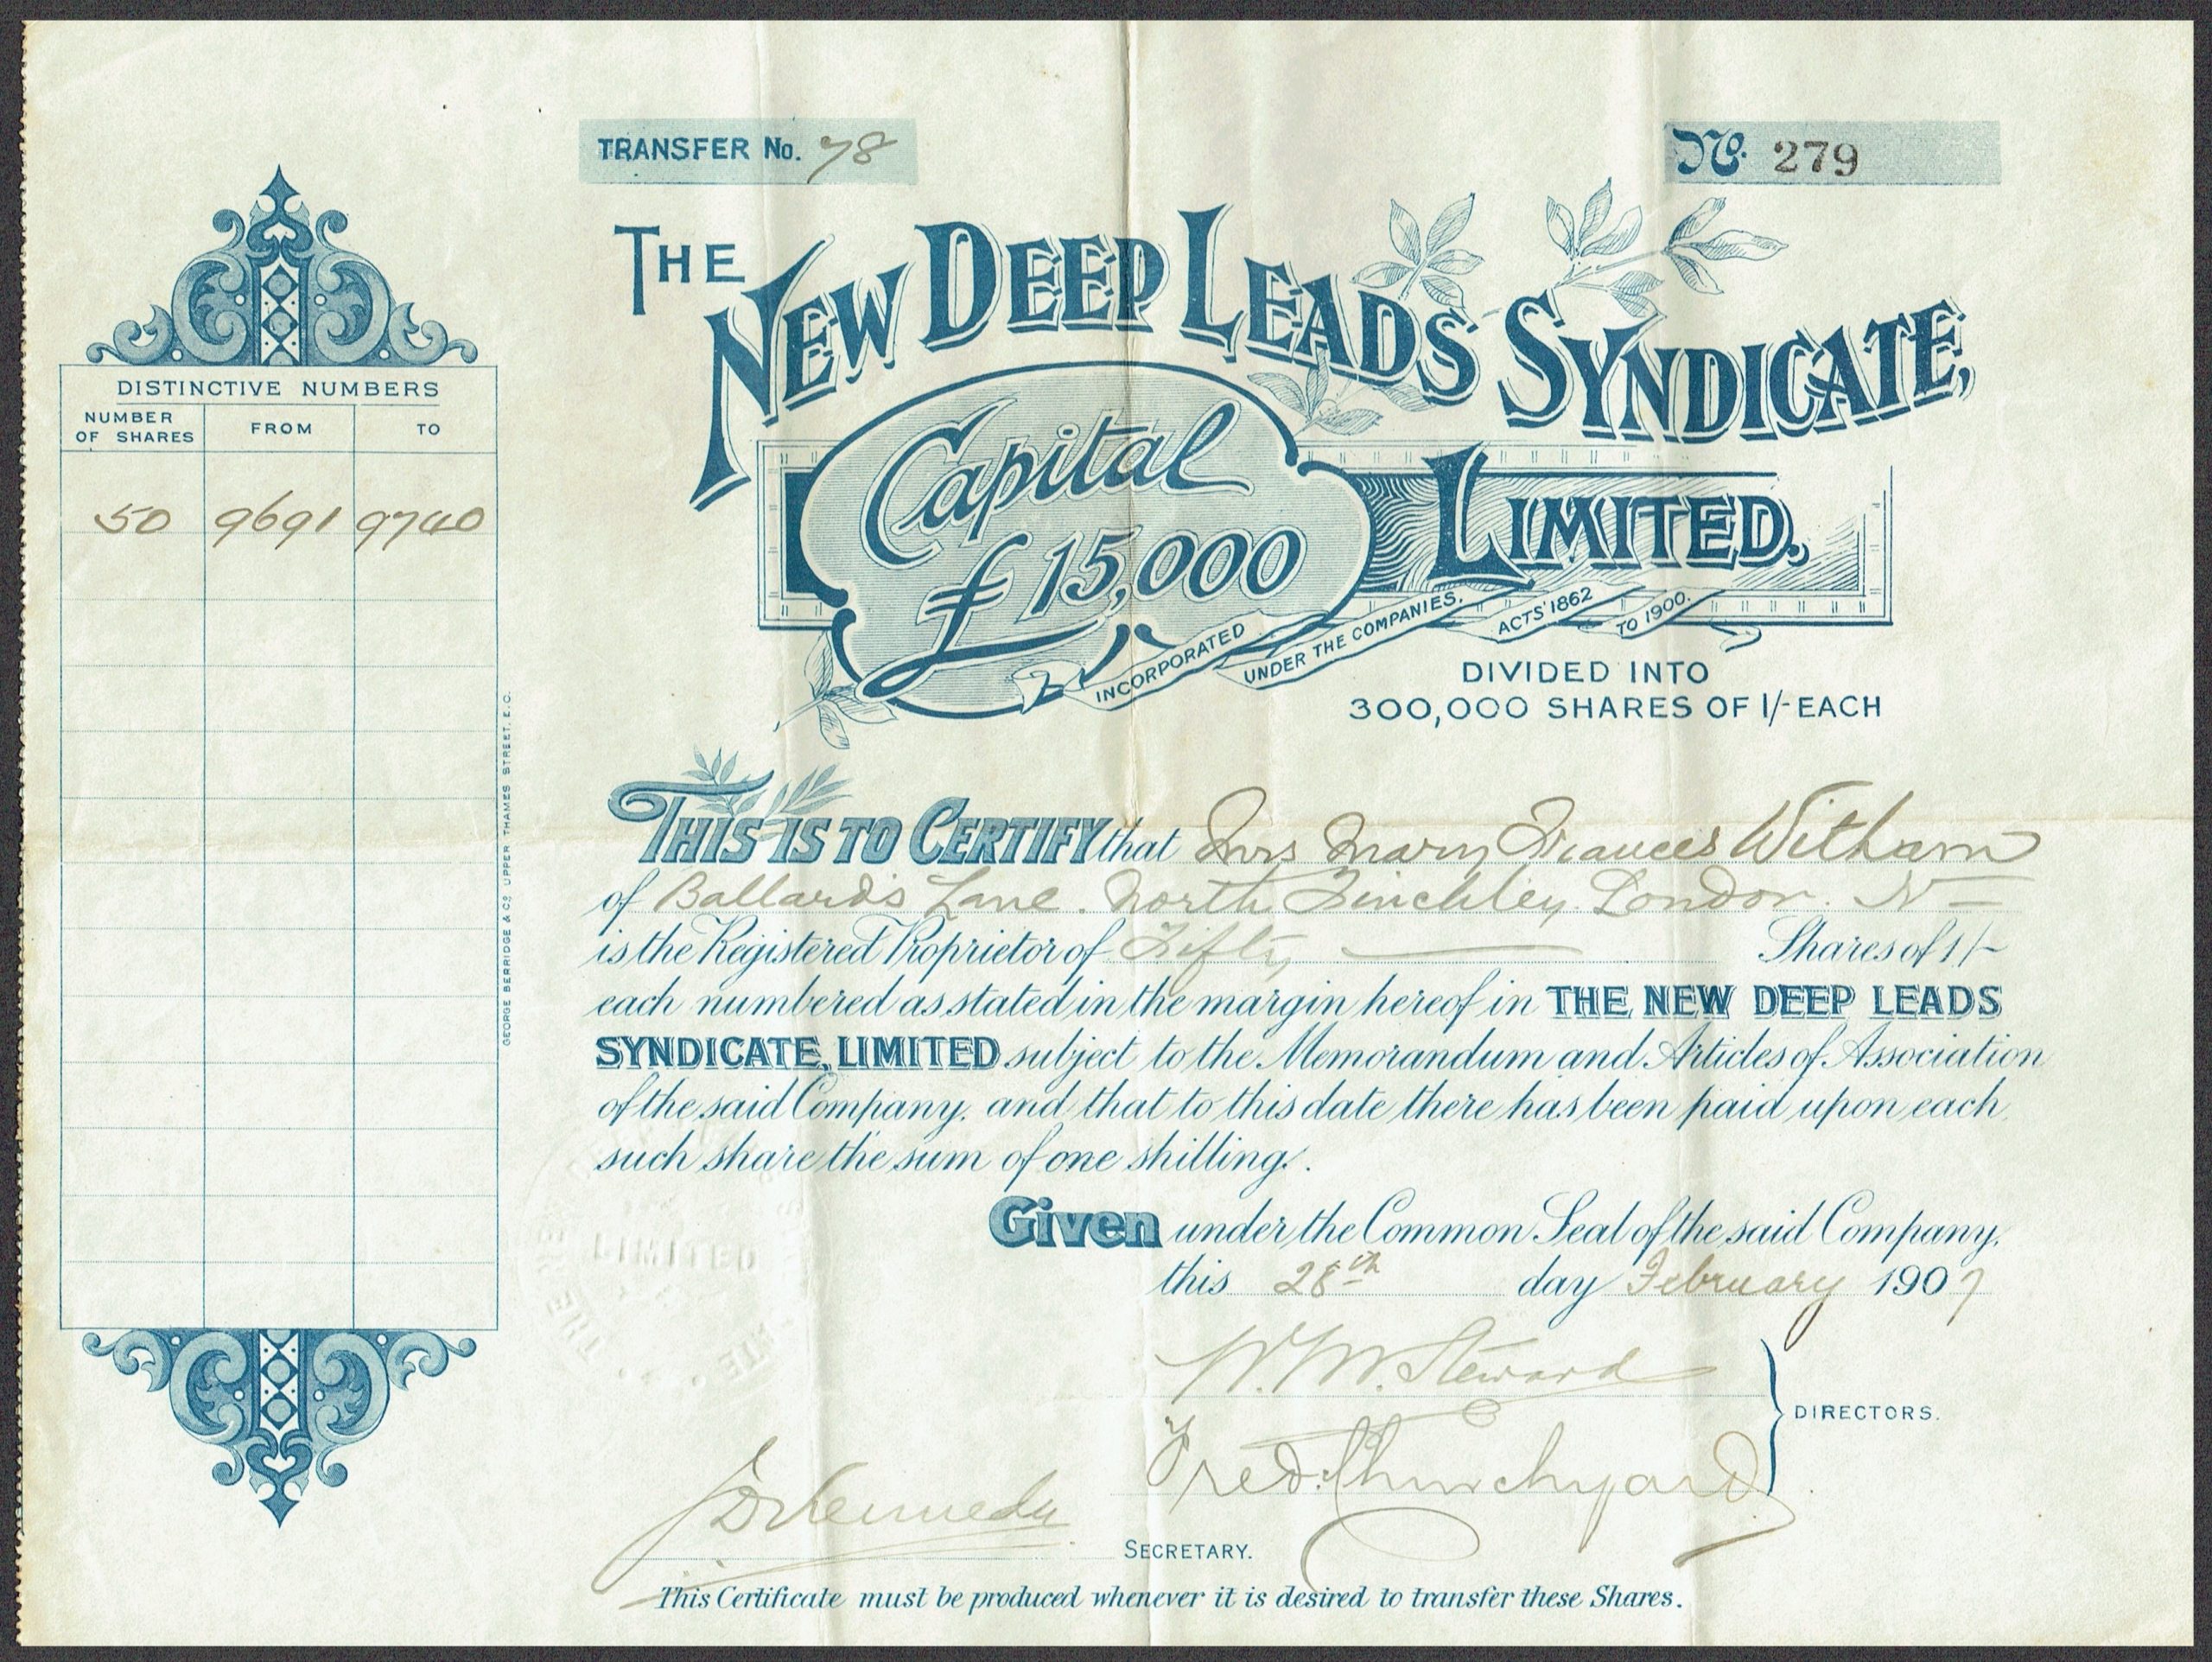 TRANSFER No. 78
No. 279
THE NEW DEEP LEADS SYNDICATE, LIMITED.
Capital
£15,000
INCORPORATED UNDER THE COMPANIES. ACTS' 1862 TO 1900.
DIVIDED INTO
300,000 SHARES OF 1/- EACH
DISTINCTIVE NUMBERS
NUMBER OF SHARES FROM TO
50 9691 9740
GEORGE BERRIDGE & CO. UPPER THAMES STREET, E.C.
THIS IS TO CERTIFY that Mrs Mary Frances Witham
of Ballards Lane. North Finchley. London. N
is the Registered Proprietor of Fifty Shares of 1/-
each numbered as stated in the margin hereof in THE NEW DEEP LEADS
SYNDICATE, LIMITED subject to the Memorandum and Articles of Association
of the said Company, and that to this date there has been paid upon each
such share the sum of one shilling.
Given under the Common Seal of the said Company,
this 28th day February 1907
W. M. Steward
Fred. Churchyard
DIRECTORS.
Kennedy
SECRETARY.
LIMITED
THE
This Certificate must be produced whenever it is desired to transfer these Shares.